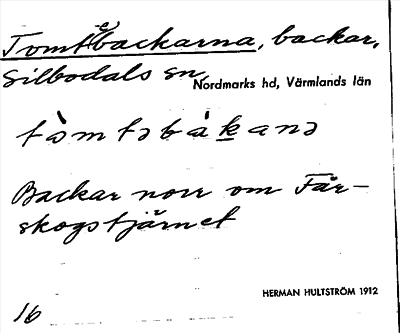 Tomt(e)backarna, backar,
Silbodals sn,
Nordmarks hd, Värmlands län
tòmtəbàkanə
Backar norr om Får-
skogstjärnet
HERMAN HULTSTRÖM 1912
16